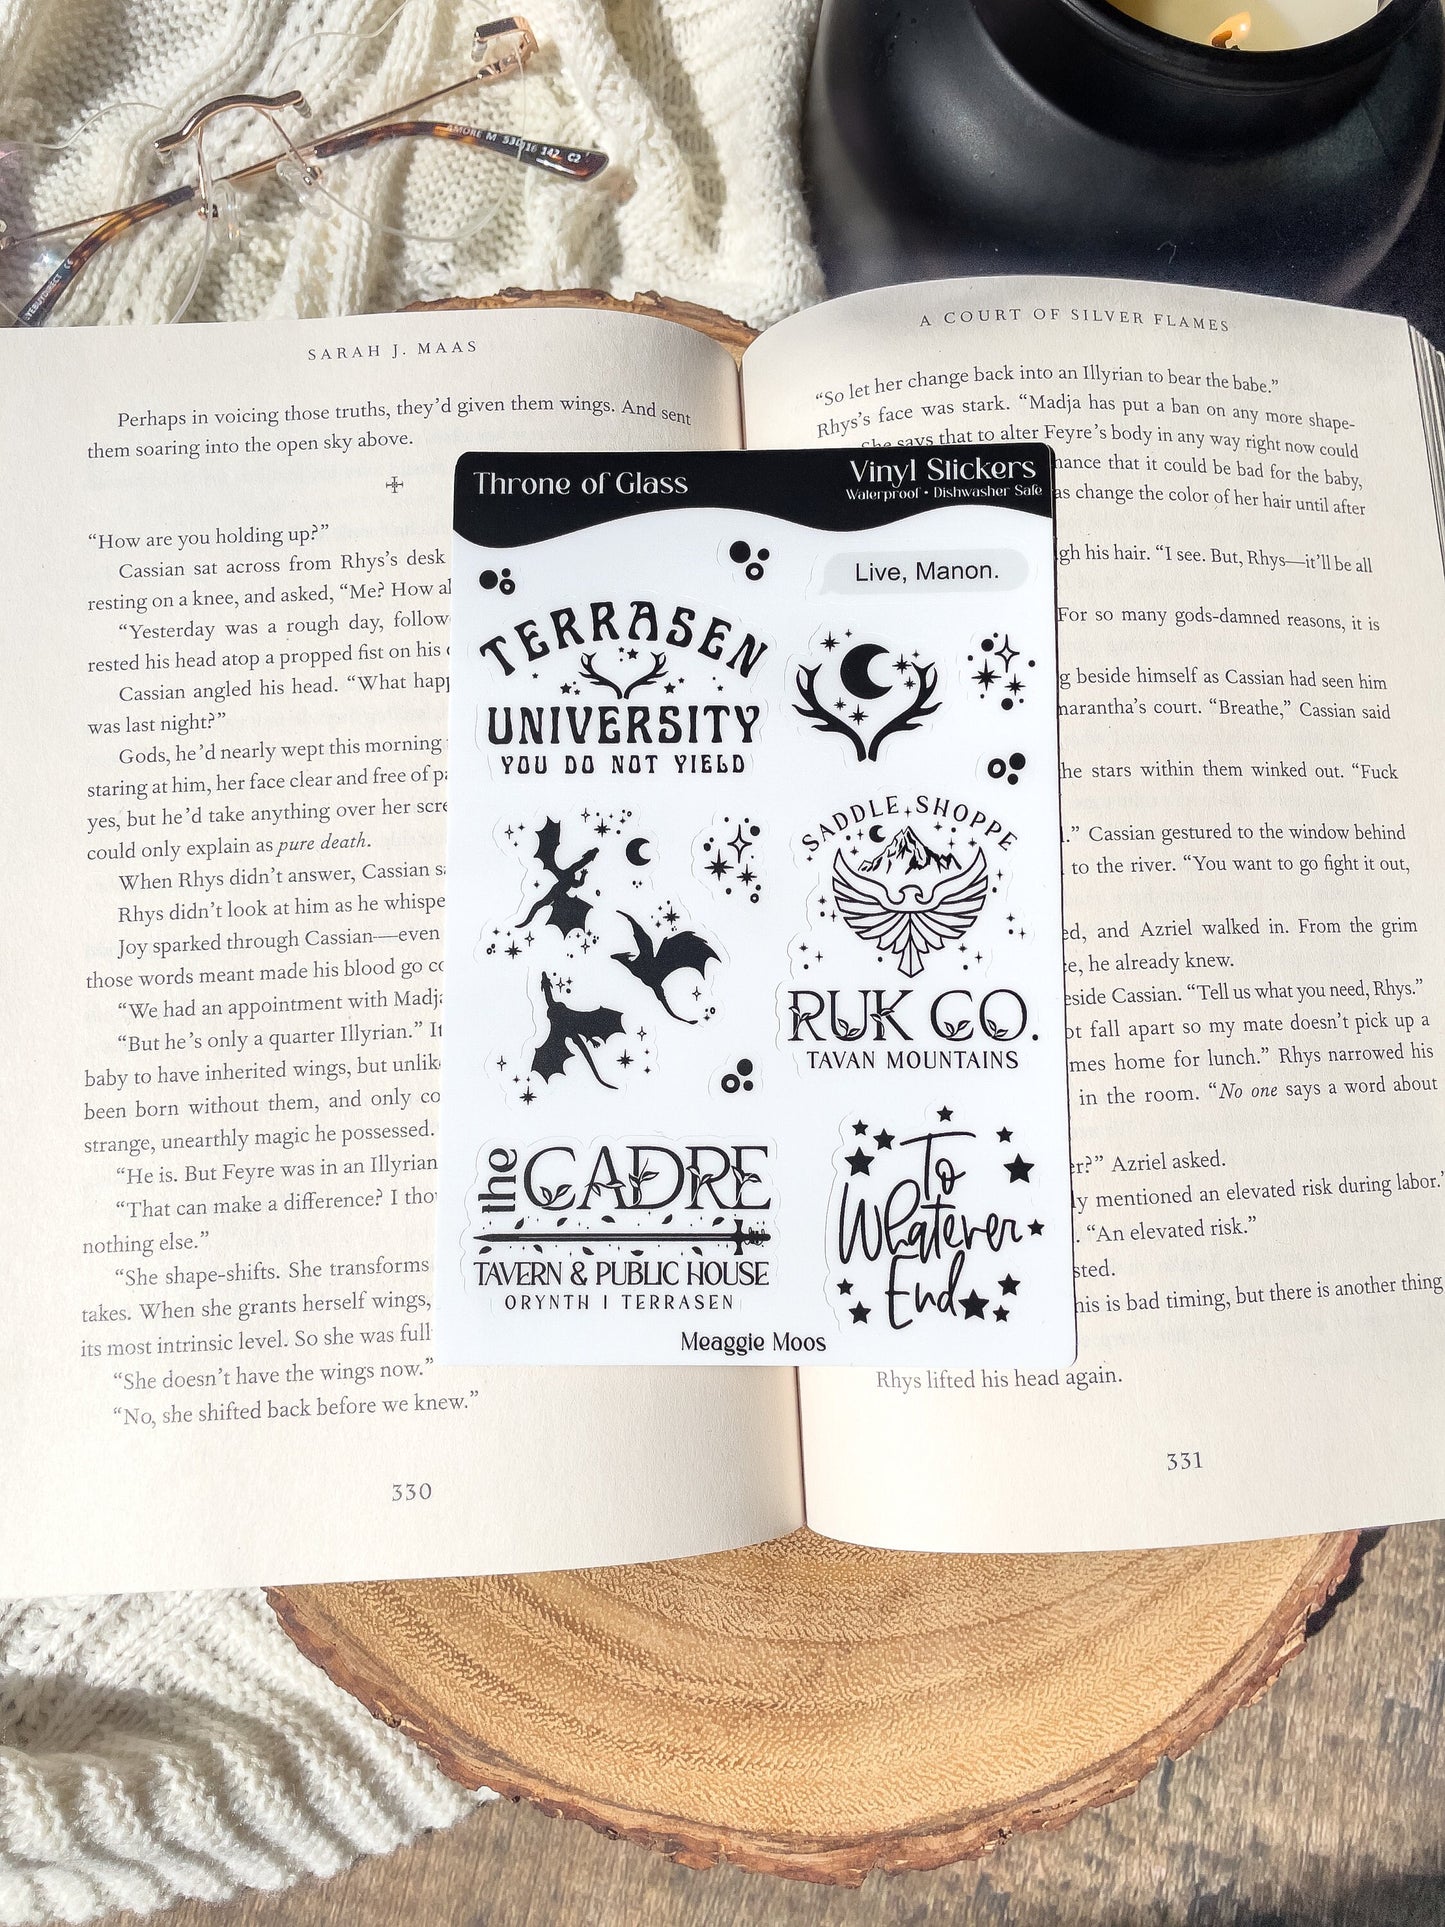 AMORE M 53 16 142 C2
SARAH J. MAAS
Perhaps in voicing those truths, they'd given them wings. And sent
them soaring into the open sky above.
"How are you holding up?"
Cassian sat across from Rhys's desk
resting on a knee, and asked, "Me? How
"Yesterday was a rough day,
rested his head atop a propped fist on his
Cassian angled his head. "What
was last night?"
Gods, he'd nearly wept this morning
staring at him, her face clear and free of
yes, but he'd take anything over her
could only explain as pure death.
When Rhys didn't answer, Cassian
Rhys didn't look at him as he
Joy sparked through Cassian—even
those words meant made his blood go
"We had an appointment with
"But he's only a quarter Illyrian."
baby to have inherited wings, but
been born without them, and only
strange, unearthly magic he possessed.
"He is. But Feyre was in an Illyrian
"That can make a difference? I
nothing else."
"She shape-shifts. She transforms
takes. When she grants herself wings,
its most intrinsic level. So she was
"She doesn't have the wings now."
"No, she shifted back before we knew."
330
A COURT OF SILVER FLAMES
"So let her change back into an Illyrian to bear the babe."
Rhys's face was stark. "Madja has put a ban on any more shape-
She says that to alter Feyre's body in any way right now could
that it could be bad for the baby,
as change the color of her hair until after
his hair. "I see. But, Rhys—it'll be all
For so many gods-damned reasons, it is
beside himself as Cassian had seen him
court. "Breathe," Cassian said
he stars within them winked out. "Fuck
Cassian gestured to the window behind
to the river. "You want to go fight it out,
and Azriel walked in. From the grim
he already knew.
Cassian. "Tell us what you need, Rhys."
fall apart so my mate doesn't pick up a
mes home for lunch." Rhys narrowed his
in the room. "No one says a word about
Azriel asked.
mentioned an elevated risk during labor.'
"An elevated risk."
is bad timing, but there is another thing
Rhys lifted his head again.
331
Throne of Glass
Vinyl Stickers
Waterproof • Dishwasher Safe
Live, Manon.
TERRASEN
UNIVERSITY
YOU DO NOT YIELD
SADDLE SHOPPE
RUK CO.
TAVAN MOUNTAINS
the CADRE
TAVERN & PUBLIC HOUSE
ORYNTH | TERRASEN
To
Whatever
End
Meaggie Moos